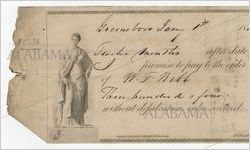 Greensboro Jany 1st
Twelve months after date
I promise to pay to the order
of W. T. Webb
Three hundred & four
without defalcation, value received
ALABAMA
ALABAMA